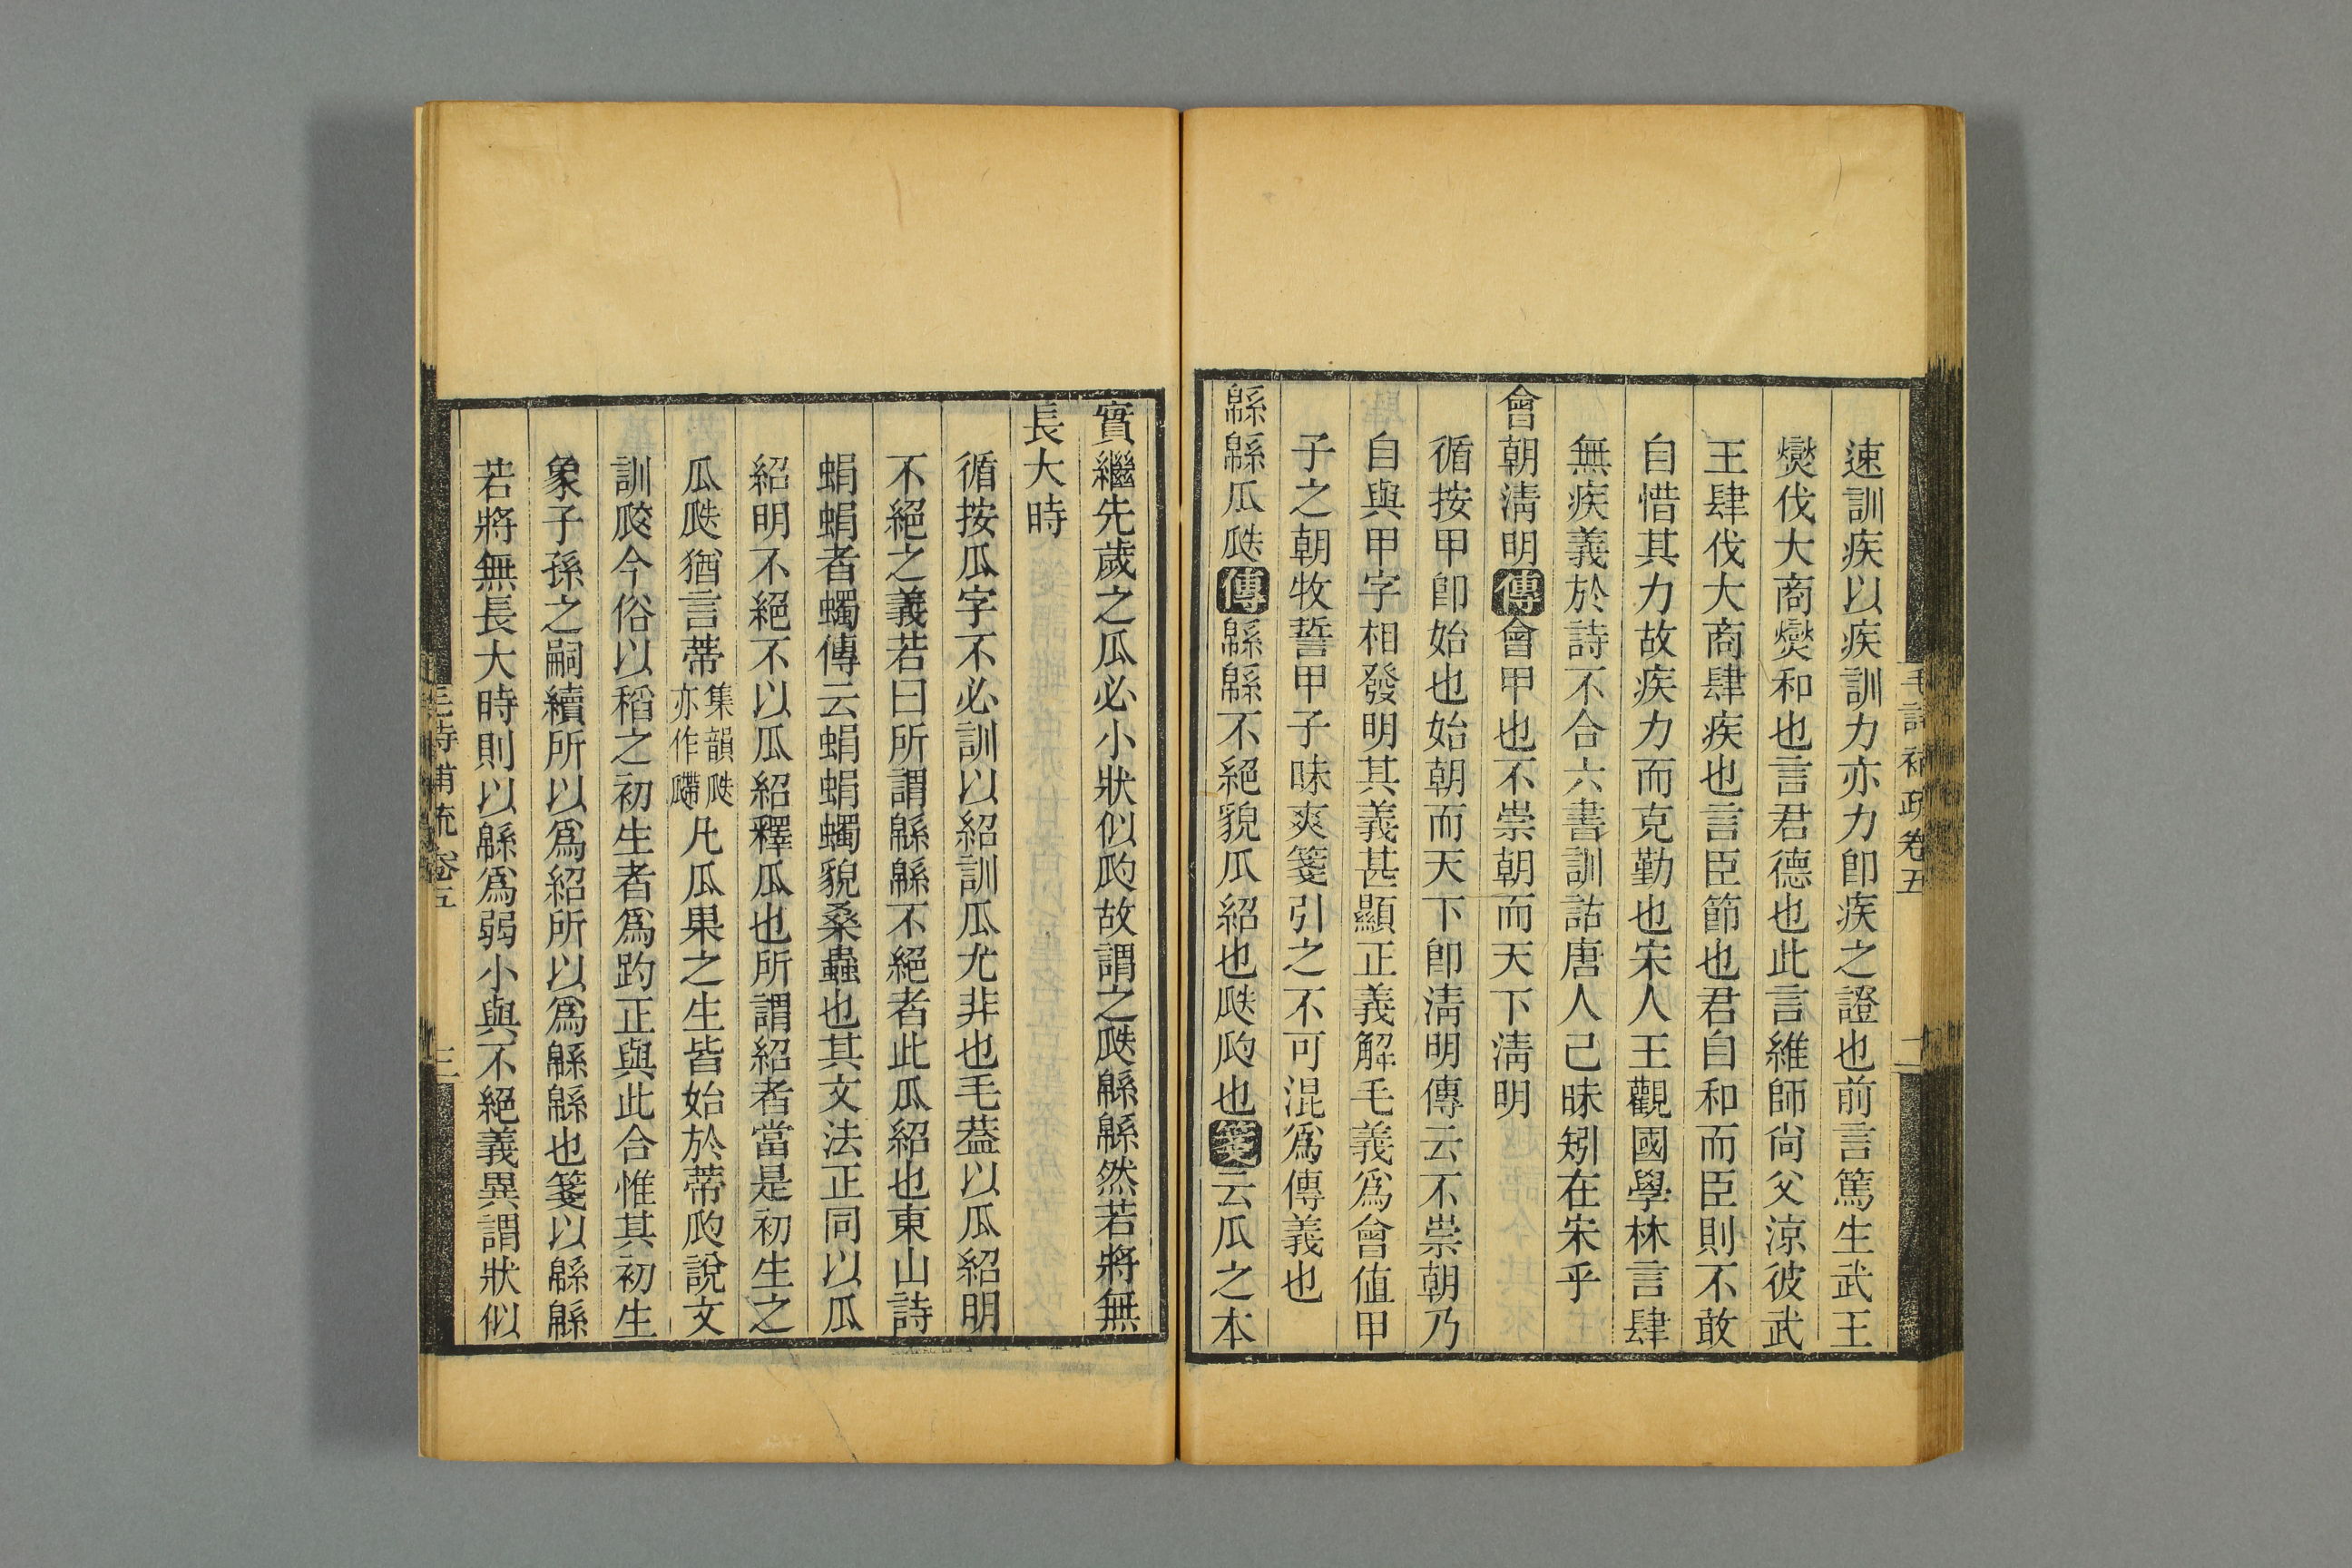 毛詩補疏卷五 二
速訓疾以疾訓力亦力卽疾之證也前言篤生武王
爕伐大商爕和也言君德也此言維師尙父涼彼武
王肆伐大商肆疾也言臣節也君自和而臣則不敢
自惜其力故疾力而克勤也宋人王觀國學林言肆
無疾義於詩不合六書訓詁唐人已昧矧在宋乎
會朝淸明傳會甲也不崇朝而天下淸明
循按甲卽始也始朝而天下卽淸明傳云不崇朝乃
自與甲字相發明其義甚顯正義解毛義爲會值甲
子之朝牧誓甲子昧爽箋引之不可混爲傳義也
緜緜瓜瓞傳緜緜不絕貌瓜紹也瓞瓝也箋云瓜之本
實繼先歲之瓜必小狀似瓝故謂之瓞緜緜然若將無
長大時
循按瓜字不必訓以紹訓瓜尤非也毛葢以瓜紹明
不絕之義若曰所謂緜緜不絕者此瓜紹也東山詩
蜎蜎者蠋傳云蜎蜎蠋貌桑蟲也其文法正同以瓜
紹明不絕不以瓜紹釋瓜也所謂紹者當是初生之
瓜瓞猶言蔕集韻瓞亦作𤬏凡瓜果之生皆始於蔕瓝說文
訓瓞今俗以稻之初生者爲趵正與此合惟其初生
象子孫之嗣續所以爲紹所以爲緜緜也箋以緜緜
若將無長大時則以緜爲弱小與不絕義異謂狀似
毛詩補疏卷五 三